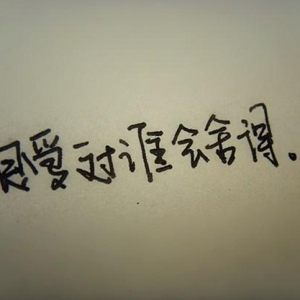 恩爱对谁会舍得.